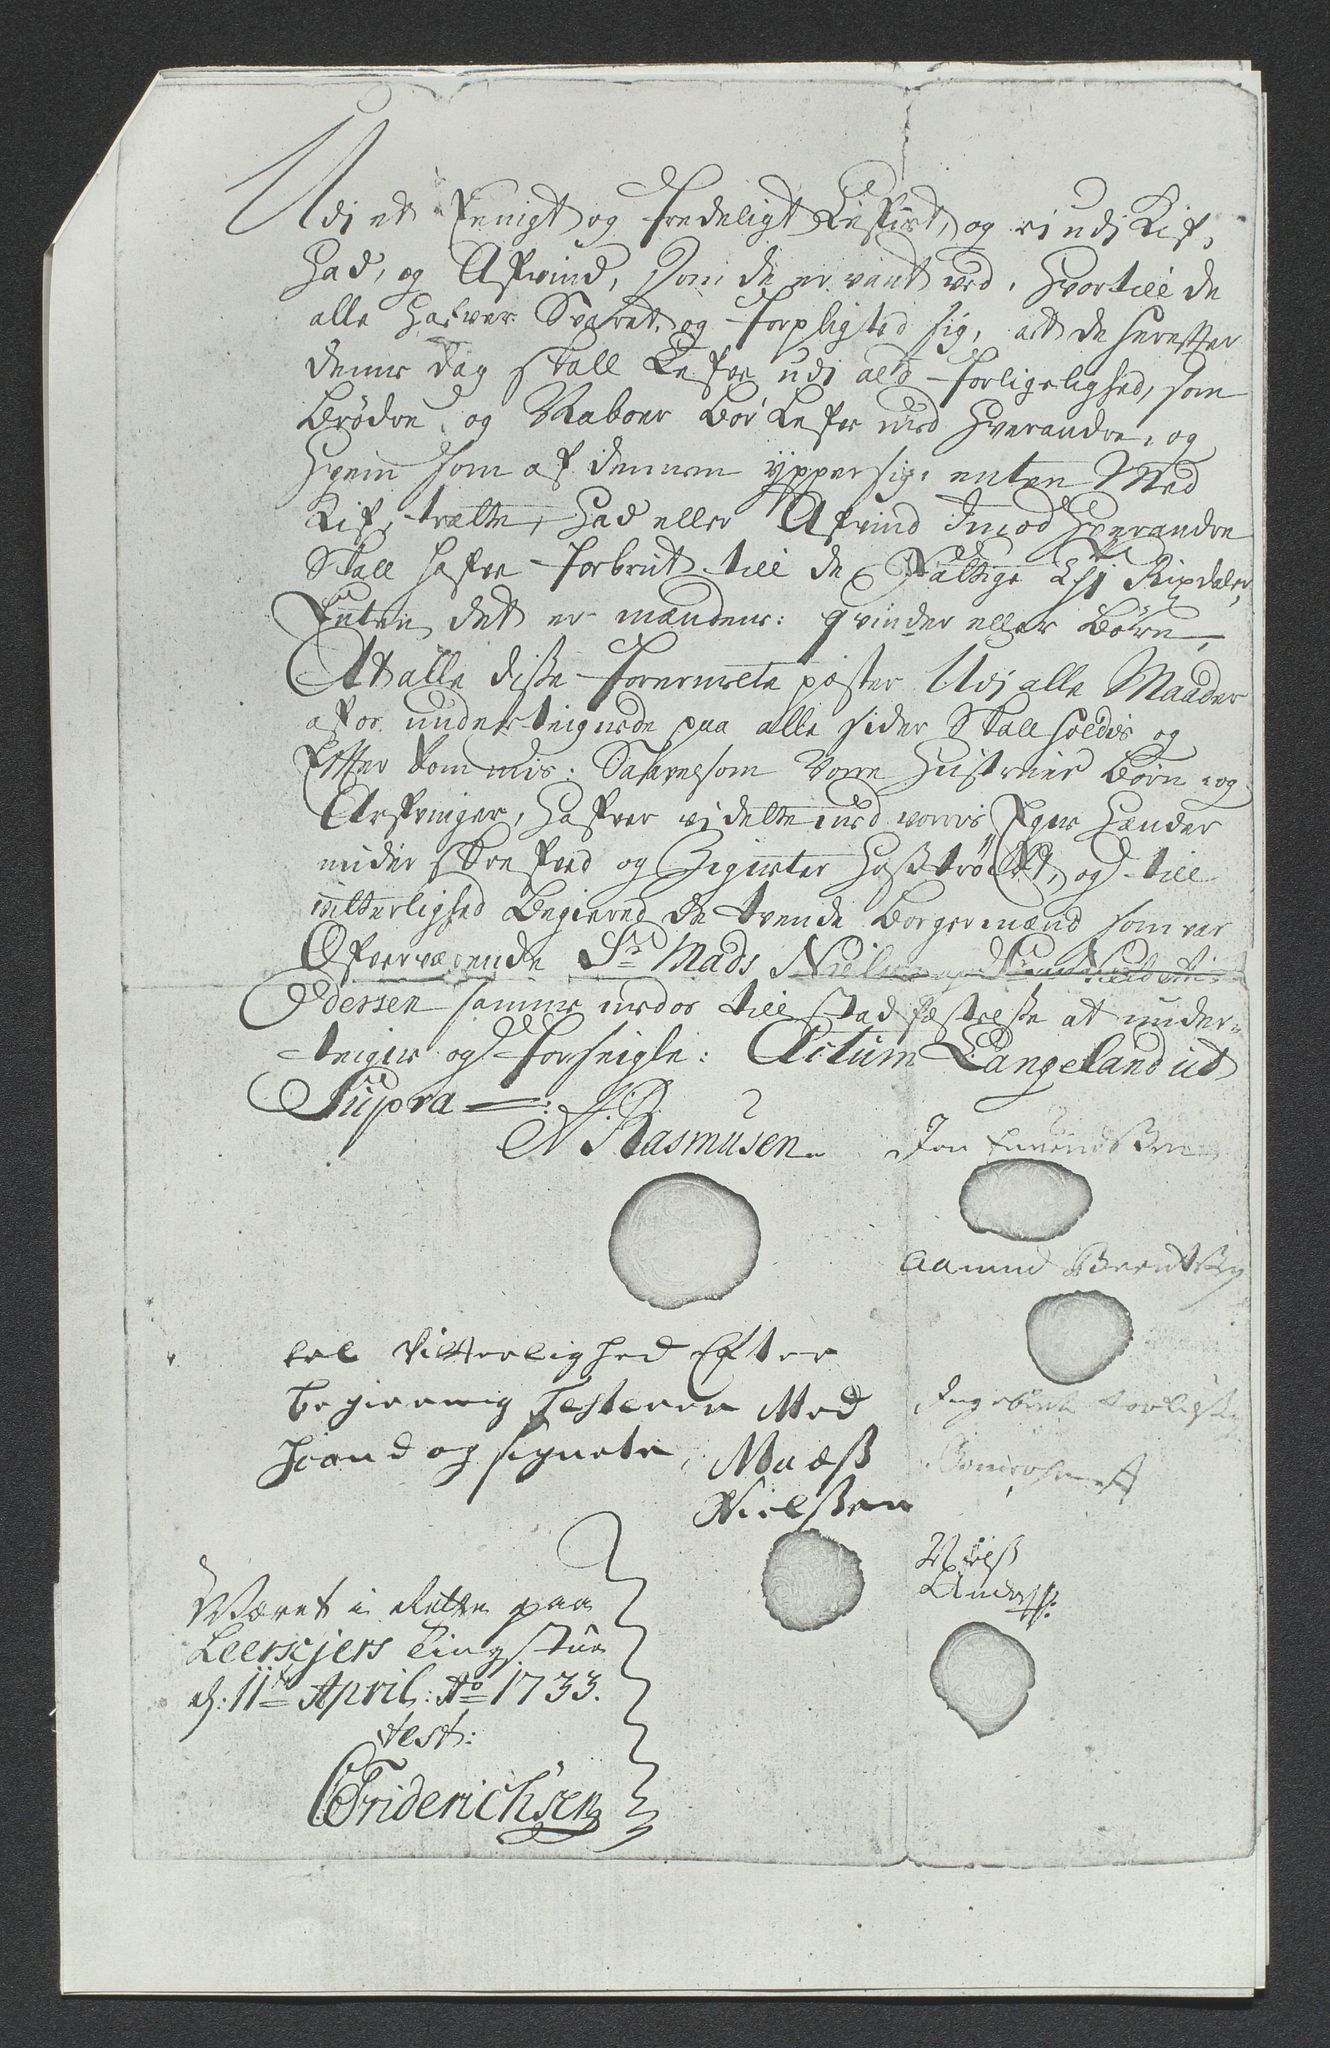 Udi et Eenigt og fredeligt Lefnet, og ei udi Kif,
had, og Afvind, Som de er vant ved, hvortill de
alle hafver Svaret og forpligted sig, att de herefter
denne dag skall Lefve udi ald forligelighed, som
brødre og Naboer bør Lefve med hverandre, og
hvem som af dennem ypper sig, enten Med
Kif, trætte, had eller Afvind Imod hverandre
Skall hafve forbrut till de Fattige Rixdaler,
Enten det er mændene: qvinder eller børn,
At alle disse forermelte poster Udi alle Maader
af os underteignede paa alle sider Skall holdes og
Efterkommis: Saavelsom vore hustruer børn og
Arfvinger, hafver vi dette med vores Egne hænder
under skrefved og Zigneter hoströkt, og till
vitterlighed begiered de tvende borgermænd som var
Ofverværende Sr. Mads Nielsen og
Edersen samme med os till stadfæstelse at under-
teigne og forseigle: Actum Langeland ut
Supra —:
N Rasmusen Jon Emundsen
Aamund Berentsen
tel Vitterlighed Efter
begiering testerer Med
Haand og signete, Maas
Nielsen
Ingebret
Niels
Anders:
Været i Rette paa
Leerskjers Tingstue
d: 11te April: Ao 1733.
test:
CFriderichsen